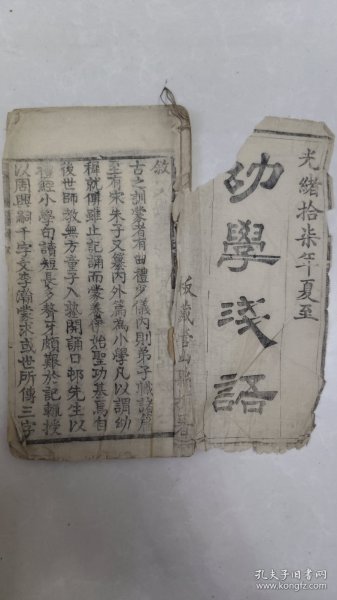 光緒拾柒年夏至
幼學淺語
版藏書山
敘
古之訓蒙者有曲禮少儀內則弟子職諸篇
至有宋朱子又纂內外篇為小學凡以謂幼
穉就傅雖止記誦而蒙養作始聖功基焉自
後世師教無方童子入塾開誦口邨先生以
禮經小學句讀短長多聱牙頗艱於記輒授
以周興嗣千字文李瀚蒙求或世所傳三字
孔夫子旧书网